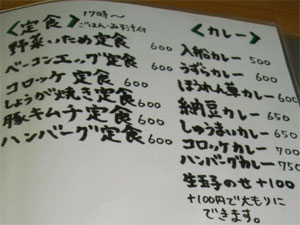 <定食> 17時〜
ごはん・みそ汁付
野菜いため定食 600
ベーコンエッグ定食 600
コロッケ定食 600
しょうが焼き定食 600
豚キムチ定食 600
ハンバーグ定食 600
<カレー>
入船カレー 500
うずらカレー 600
ほうれん草カレー 650
納豆カレー 650
しゅうまいカレー 650
コロッケカレー 700
ハンバーグカレー 750
生玉子のせ +100
+100円で大もりに
できます。